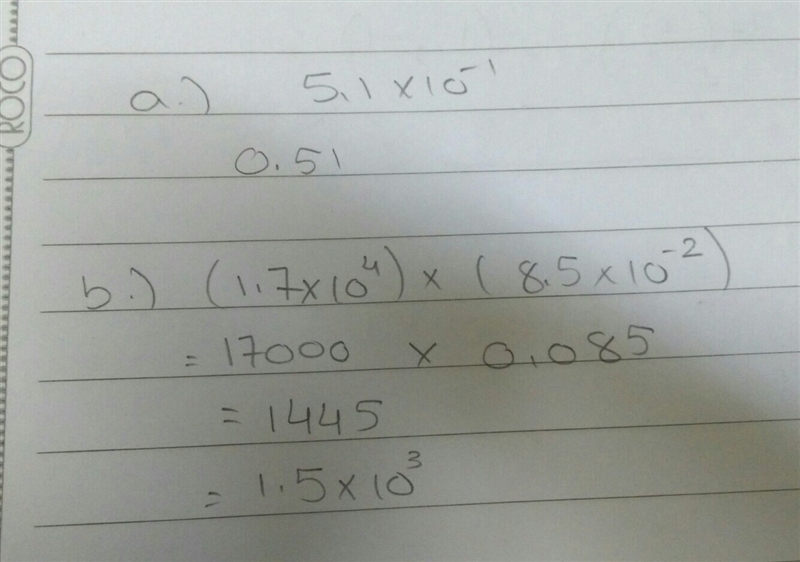 ROCO
a.) 5.1 × 10⁻¹
0.51
b.) (1.7 × 10⁴) × ( 8.5 × 10⁻²)
= 17000 × 0.085
= 1445
= 1.5 × 10³